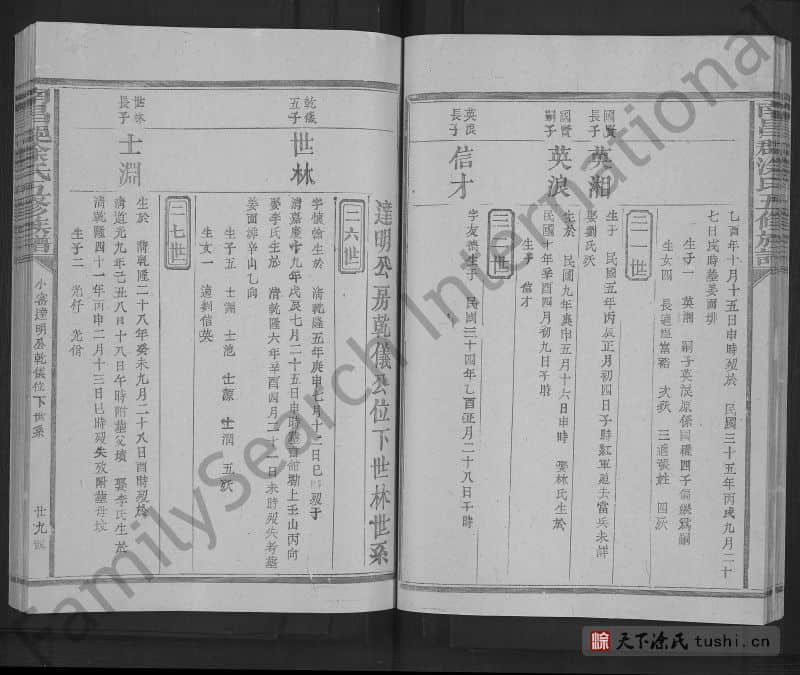 乙酉年十月十五日申時歿於 民國三十五年丙戌九月二十
七日戌時墓姜面排
生子一 英湘 嗣子英浪原係國權四子
生女四 長適
三二世
國賢
長子
英湘
生於 民國五年丙辰正月初四日子時紅軍過去當兵未歸
娶劉氏
國賢
嗣子
英浪
生於 民國九年庚申五月十六日申時 娶林氏生於
民國十年辛酉四月初九日子時
生子 信才
三三世
英浪
長子
信才
字友 生于 民國三十四年乙酉正月二十八日子時
達明公房乾儀公位下世林世系
二六世
乾儀
五子
世林
字 生於 清乾隆五年庚申七月十二日巳時歿于
清嘉慶十九年戌七月二十五日申時墓 壬山丙向
娶李氏生於 清乾隆六年辛酉四月二十一日未時歿失考墓
姜面排辛山乙向
生子五 士淵 士池 士源 士潤 五
生女一 適劉信英
二七世
世林
長子
士淵
生於 清乾隆二十八年癸未九月二十八日酉時歿於
清道光九年己丑八月十八日午時附墓父墳 娶李氏生於
清乾隆四十一年丙申二月十三日巳時歿失攷附墓母墳
生子二 光
小 達明房乾儀位下世系
廿九
天下涂氏tushi.cn
FamilySearch International